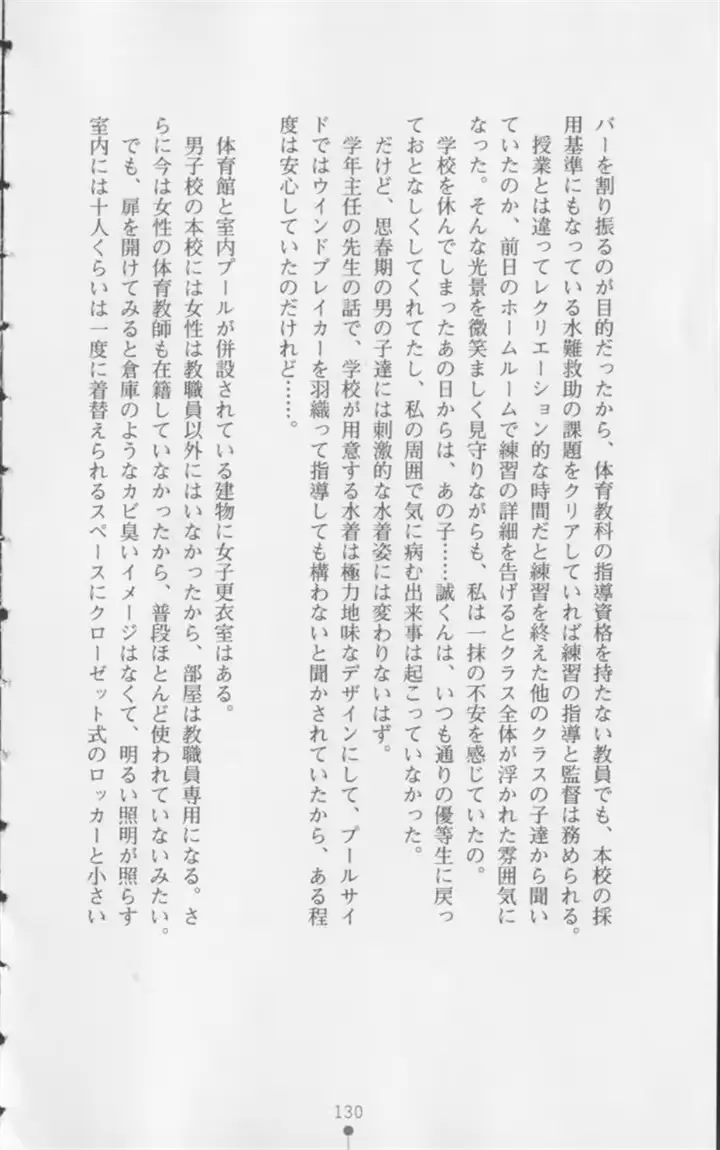 バーを割り振るのが目的だったから、体育教科の指導資格を持たない教員でも、本校の採
用基準にもなっている水難救助の課題をクリアしていれば練習の指導と監督は務められる。
授業とは違ってレクリエーション的な時間だと練習を終えた他のクラスの子達から聞い
ていたのか、前日のホームルームで練習の詳細を告げるとクラス全体が浮かれた雰囲気に
なった。そんな光景を微笑ましく見守りながらも、私は一抹の不安を感じていたの。
学校を休んでしまったあの日からは、あの子……誠くんは、いつも通りの優等生に戻っ
ておとなしくしてくれてたし、私の周囲で気に病む出来事は起こっていなかった。
だけど、思春期の男の子達には刺激的な水着姿には変わりないはず。
学年主任の先生の話で、学校が用意する水着は極力地味なデザインにして、プールサイ
ドではウインドブレイカーを羽織って指導しても構わないと聞かされていたから、ある程
度は安心していたのだけれど……。
体育館と室内プールが併設されている建物に女子更衣室はある。
男子校の本校には女性は教職員以外にはいなかったから、部屋は教職員専用になる。さ
らに今は女性の体育教師も在籍していなかったから、普段ほとんど使われていないみたい。
でも、扉を開けてみると倉庫のようなカビ臭いイメージはなくて、明るい照明が照らす
室内には十人くらいは一度に着替えられるスペースにクローゼット式のロッカーと小さい
130